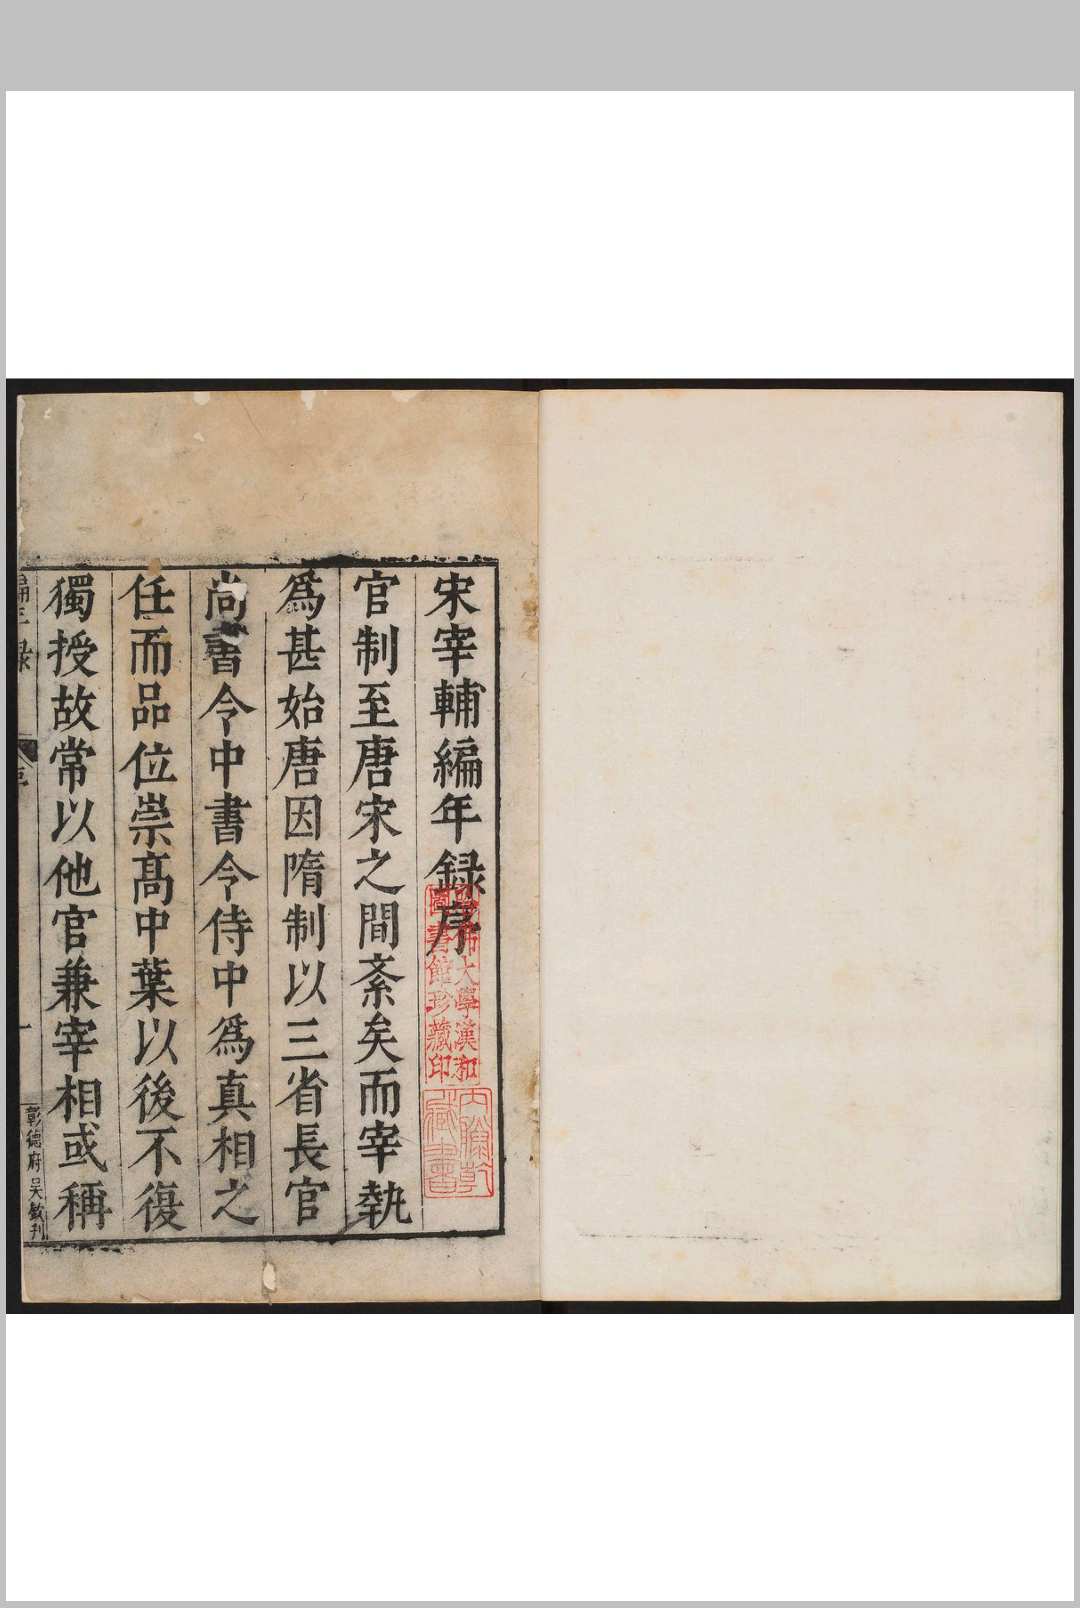 宋宰輔編年録序
官制至唐宋之間紊矣而宰執
爲甚始唐因隋制以三省長官
尚書令中書令侍中爲真相之
任而品位崇髙中葉以後不復
獨授故常以他官兼宰相或稱
彰德府吴敏刊
大學漢和
圖書館珍藏印
藏書